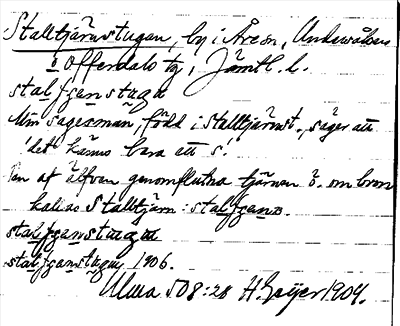 Stalltjärnstugan, by i Åreon, Undersåkers
o Offerdals tg, Jämtl. l.
stalʃɛanstugu
Min sagesman, född i Stalltjärnst., säger att
'det känns bara ett s'.
Den af älfven genomflutna tjärnen ö. om bron
kallas Stalltjärn: stalʃɛanɔ.
stalʃɛanstugu
stalʃɛanstugu 1906.
Ulma 508:28 H. Geijer 1904.